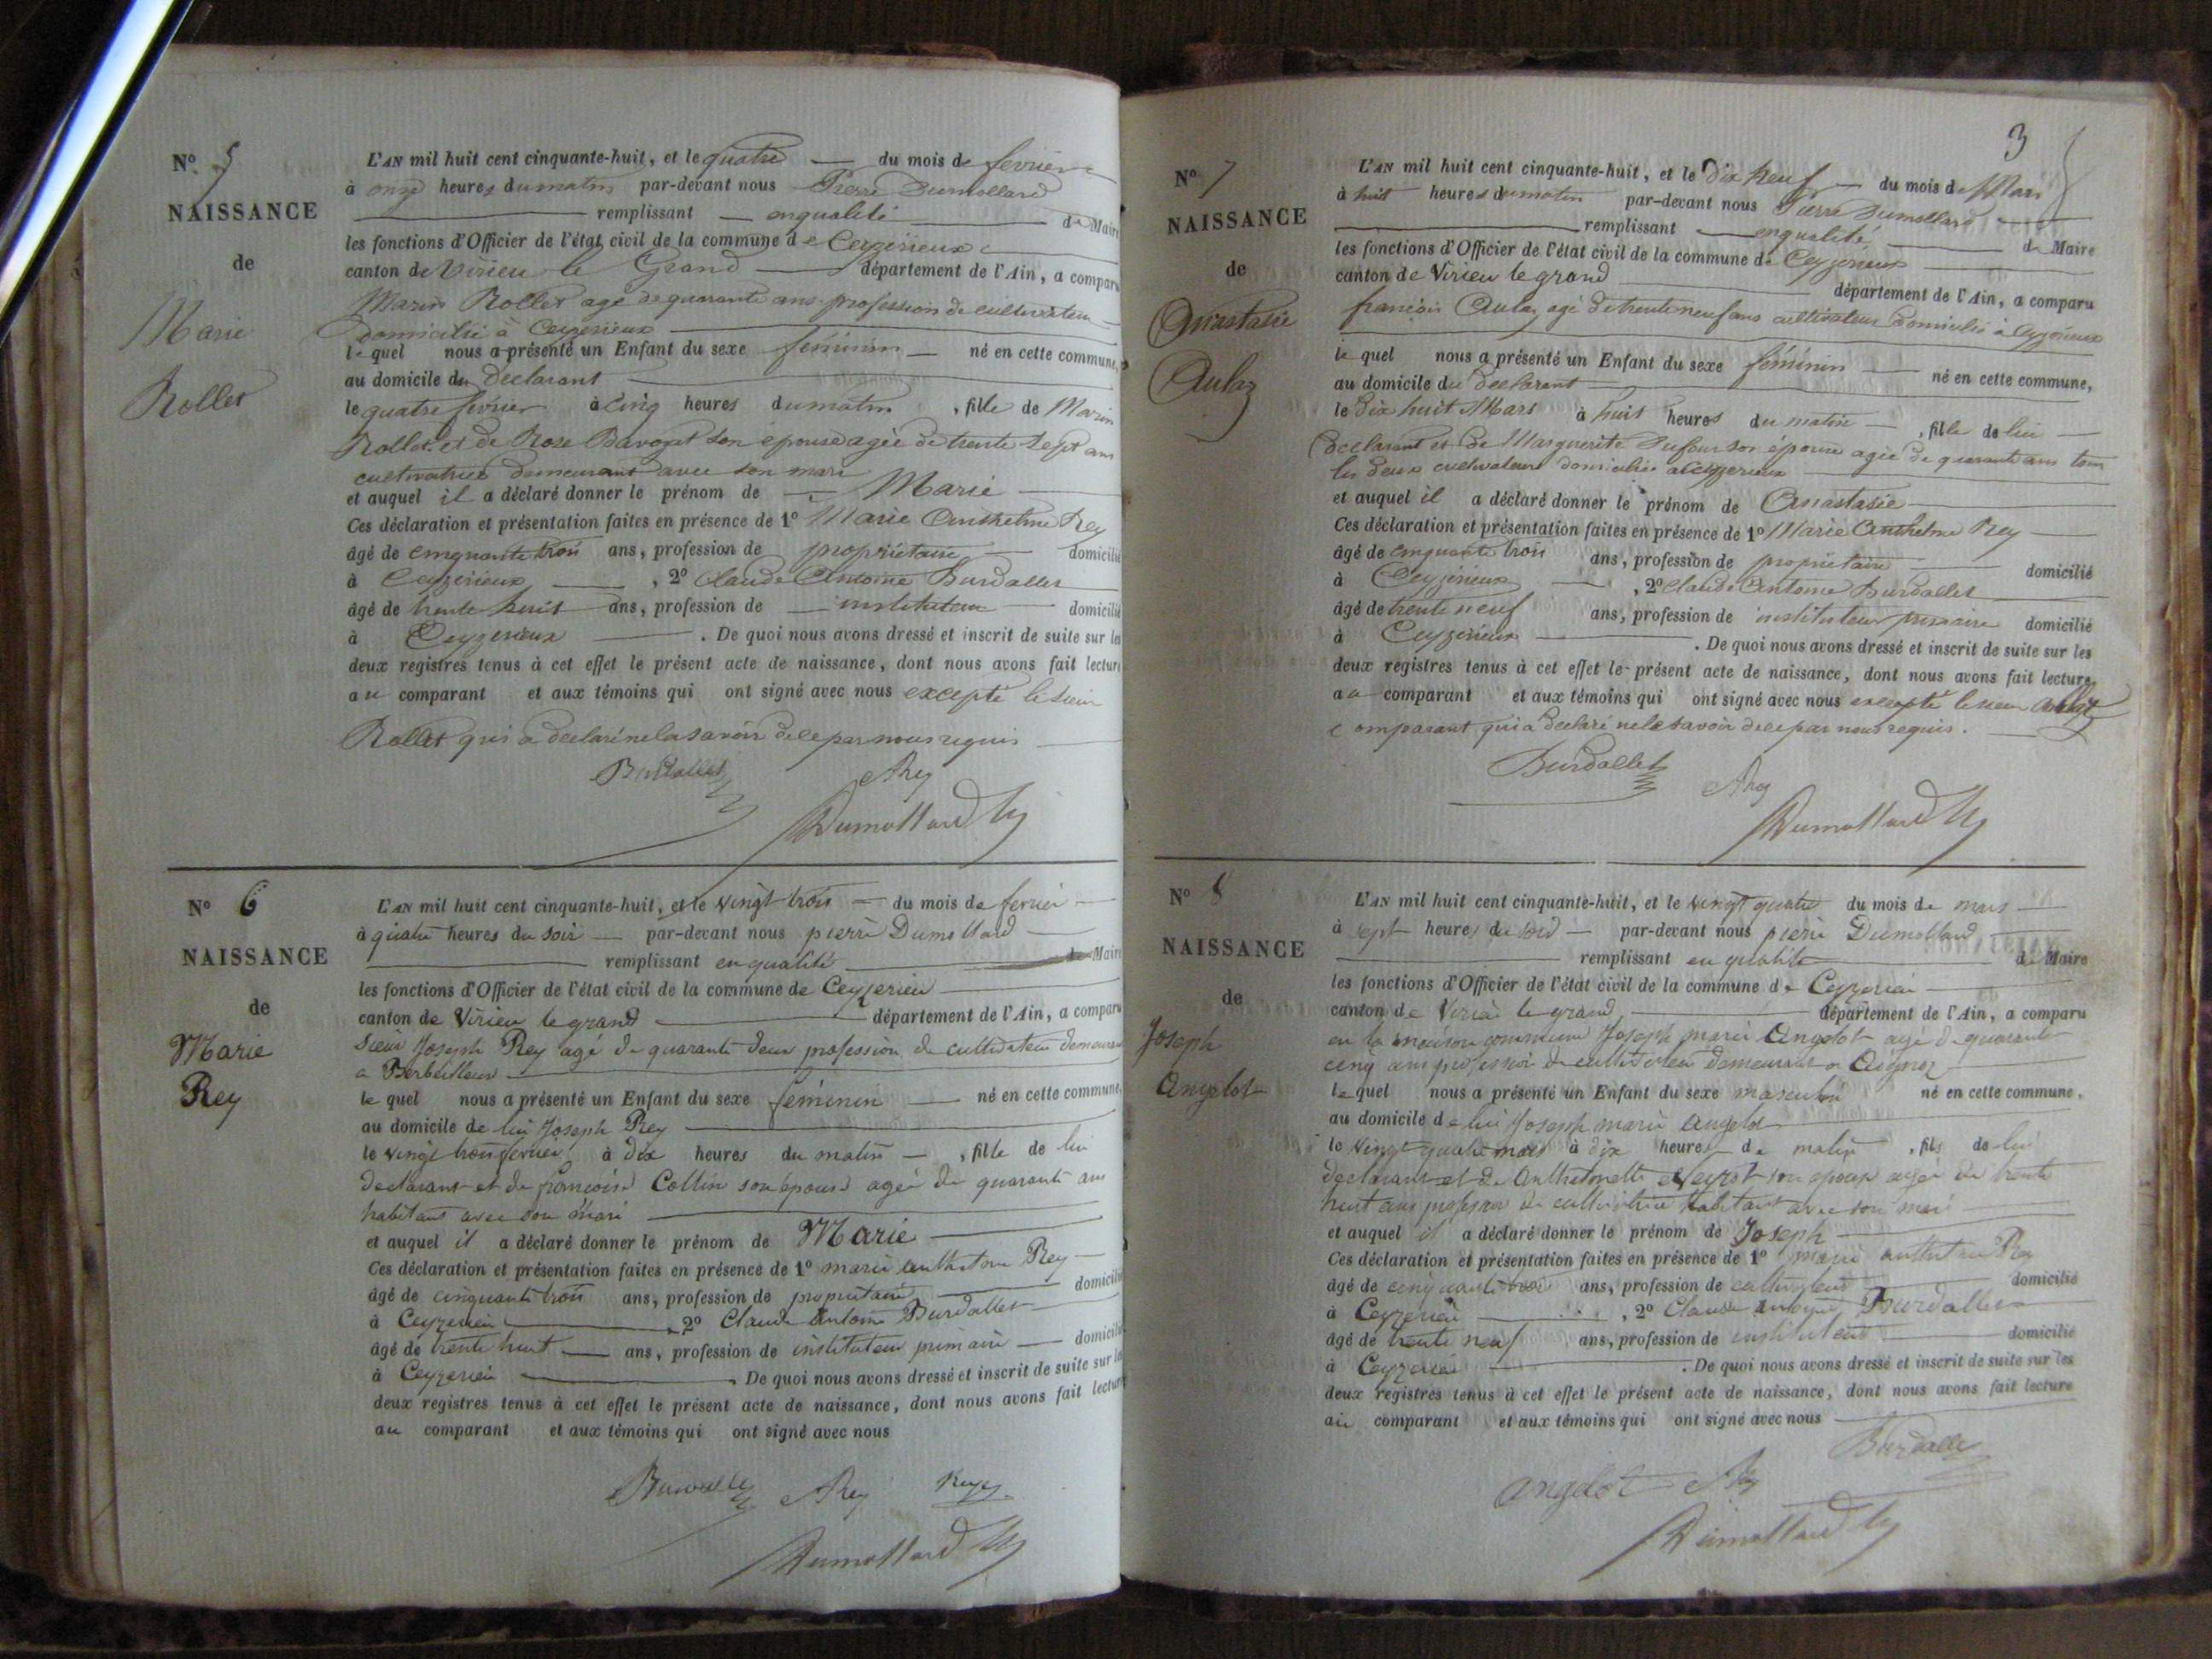 Nº 5
NAISSANCE
de
Marie
Rollet
L'AN mil huit cent cinquante-huit, et le quatre du mois de fevrier
à onze heures du matin par-devant nous Pierre Dumollard
remplissant en qualité de Maire
les fonctions d'Officier de l'état civil de la commune de Ceyzerieux
canton de Virieu le Grand département de l'Ain, a comparu
Marin Rollet agé de quarante ans profession de cultivateur
domicilié à Ceyzerieux
lequel nous a présenté un Enfant du sexe féminin né en cette commune,
au domicile du Declarant
le quatre fevrier à cinq heures du matin, fille de Marin
Rollet et de Rose son épouse agée de trente sept ans
cultivatrice demeurant avec son mari
et auquel il a déclaré donner le prénom de Marie
Ces déclaration et présentation faites en présence de 1º Marie Anthelme Rey
âgé de cinquante trois ans, profession de propriétaire domicilié
à Ceyzerieux, 2º Claude Antoine Burdallet
âgé de trente huit ans, profession de instituteur domicilié
à Ceyzerieux. De quoi nous avons dressé et inscrit de suite sur les
deux registres tenus à cet effet le présent acte de naissance, dont nous avons fait lecture
au comparant et aux témoins qui ont signé avec nous excepté le sieur
Rollet qui a declaré ne la savoir de ce par nous requis
Burdallet ARey
Dumollard
Nº 6
NAISSANCE
de
Marie
Rey
L'AN mil huit cent cinquante-huit, et le vingt trois du mois de fevrier
à quatre heures du soir par-devant nous pierre Dumollard
remplissant en qualité de Maire
les fonctions d'Officier de l'état civil de la commune de Ceyzerieu
canton de Virieu le grand département de l'Ain, a comparu
Sieur Joseph Rey agé de quarante deux profession de cultivateur demeurant
a
lequel nous a présenté un Enfant du sexe féminin né en cette commune,
au domicile de lui Joseph Rey
le vingt trois fevrier à dix heures du matin, fille de lui
declarant et de françoise Collin son épouse agée de quarante ans
habitant avec son mari
et auquel il a déclaré donner le prénom de Marie
Ces déclaration et présentation faites en présence de 1º marie anthelme Rey
âgé de cinquante trois ans, profession de propriétaire domicilié
à Ceyzerieu 2º Claude Antoine Burdallet
âgé de trente huit ans, profession de instituteur primaire domicilié
à Ceyzerieu. De quoi nous avons dressé et inscrit de suite sur les
deux registres tenus à cet effet le présent acte de naissance, dont nous avons fait lecture
au comparant et aux témoins qui ont signé avec nous
Burdallet ARey Rey
Dumollard
3
Nº 7
NAISSANCE
de
Anastasie
Aulaz
L'AN mil huit cent cinquante-huit, et le Dix neuf du mois de Mars
à huit heures du matin par-devant nous Pierre Dumollard
remplissant en qualité de Maire
les fonctions d'Officier de l'état civil de la commune de Ceyzerieux
canton de Virieu le grand département de l'Ain, a comparu
françois Aulaz agé de trente neuf ans cultivateur domicilié à Ceyzerieux
lequel nous a présenté un Enfant du sexe féminin né en cette commune,
au domicile du Declarant
le Dix huit Mars à huit heures du matin, fille de lui
Declarant et de Marguerite Dufour son épouse agée de quarante ans tous
les deux cultivateurs domiciliés a Ceyzerieux
et auquel il a déclaré donner le prénom de Anastasie
Ces déclaration et présentation faites en présence de 1º Marie Anthelme Rey
âgé de cinquante trois ans, profession de propriétaire domicilié
à Ceyzérieux, 2º Claude Antoine Burdallet
âgé de trente neuf ans, profession de instituteur primaire domicilié
à Ceyzerieux. De quoi nous avons dressé et inscrit de suite sur les
deux registres tenus à cet effet le présent acte de naissance, dont nous avons fait lecture
au comparant et aux témoins qui ont signé avec nous excepté le sieur Aulaz
comparant qui a declaré ne le savoir de ce par nous requis.
Burdallet ARey
Dumollard
Nº 8
NAISSANCE
de
Joseph
Angelot
L'AN mil huit cent cinquante-huit, et le vingt quatre du mois de mars
à sept heures du soir par-devant nous pierre Dumollard
remplissant en qualité de Maire
les fonctions d'Officier de l'état civil de la commune de Ceyzerieu
canton de Virieu le grand département de l'Ain, a comparu
en la maison commune Joseph marie Angelot agé de quarante
cinq ans profession de cultivateur demeurant a
lequel nous a présenté un Enfant du sexe masculin né en cette commune,
au domicile de lui Joseph marie angelot
le vingt quatre mars à dix heures du matin, fils de lui
declarant et de son epouse agée de trente
huit ans profession de cultivatrice habitant avec son mari
et auquel il a déclaré donner le prénom de Joseph
Ces déclaration et présentation faites en présence de 1º marie anthelme Rey
âgé de cinquante trois ans, profession de cultivateur domicilié
à Ceyzerieu, 2º Claude antoine Burdallet
âgé de trente neuf ans, profession de instituteur domicilié
à Ceyzerieu. De quoi nous avons dressé et inscrit de suite sur les
deux registres tenus à cet effet le présent acte de naissance, dont nous avons fait lecture
au comparant et aux témoins qui ont signé avec nous
Burdallet
angelot ARey
Dumollard